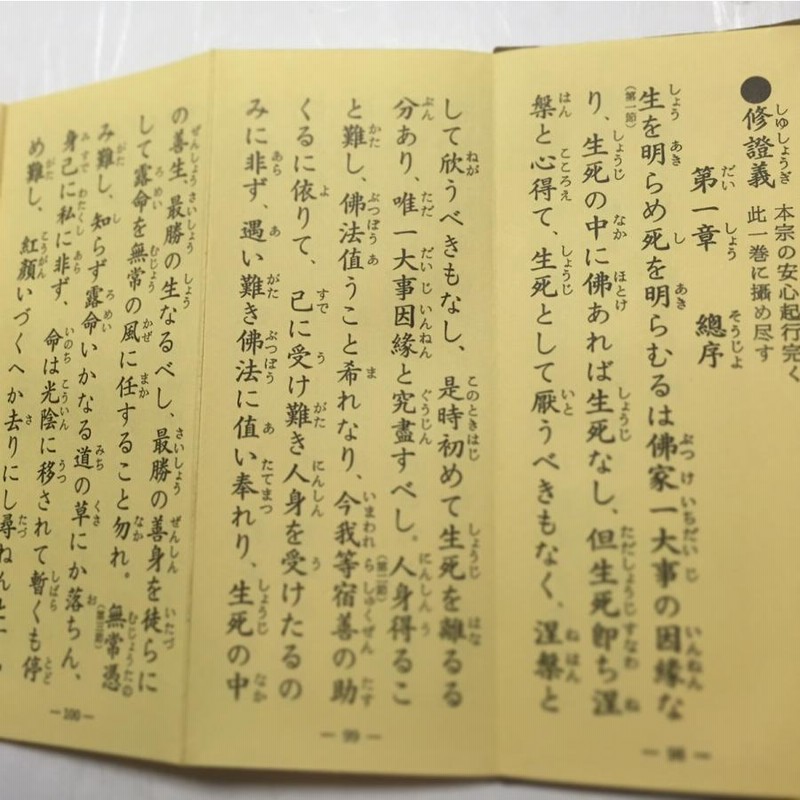 ●修證義 本宗の安心起行完く
此一巻に攝め尽す
第一章 總序
(第一節)生を明らめ死を明らむるは佛家一大事の因縁な
り、生死の中に佛あれば生死なし、但生死即ち涅
槃と心得て、生死として厭うべきもなく、涅槃と
―98―
して欣うべきもなし、是時初めて生死を離るる
分あり、唯一大事因縁と究盡すべし。(第二節)人身得るこ
と難し、佛法値うこと希れなり、今我等宿善の助
くるに依りて、已に受け難き人身を受けたるの
みに非ず、遇い難き佛法に値い奉れり、生死の中
―99―
の善生、最勝の生なるべし、最勝の善身を徒らに
して露命を無常の風に任すること勿れ。(第三節)無常憑
み難し、知らず露命いかなる道の草にか落ちん、
身已に私に非ず、命は光陰に移されて暫くも停
め難し、紅顔いづくへか去りにし尋ねんと
―100―